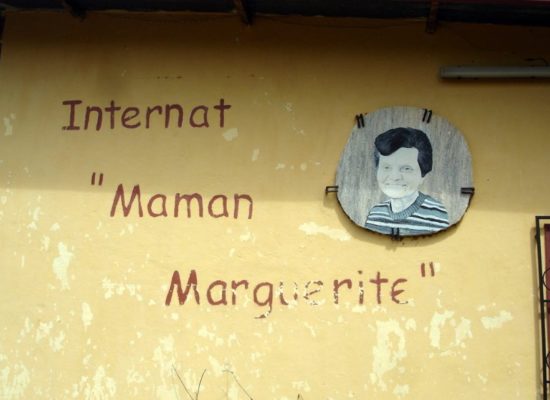 Internat
"Maman
Marguerite"